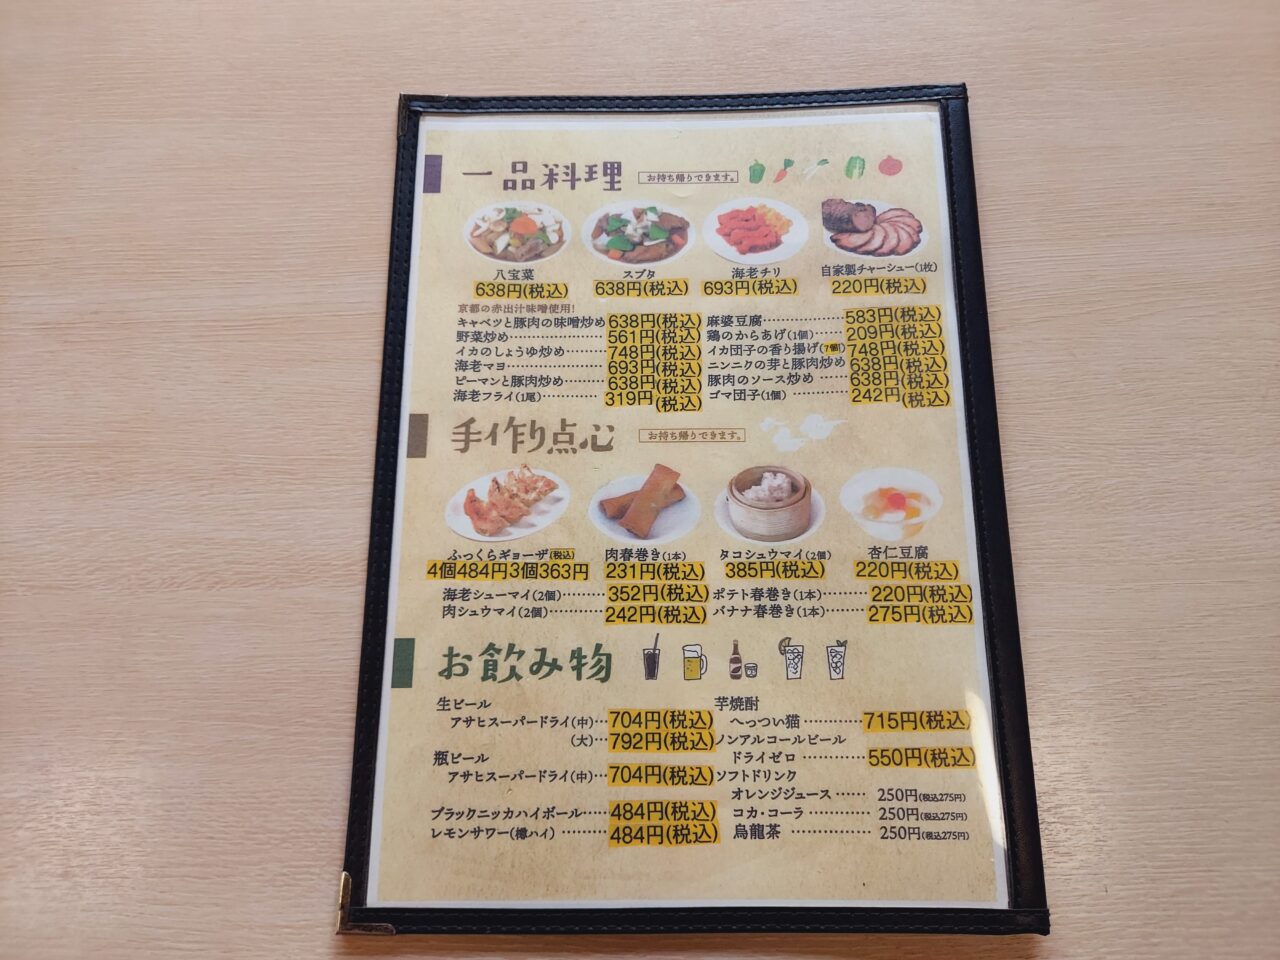 一品料理 お持ち帰りできます。
八宝菜 スブタ 海老チリ 自家製チャーシュー(1枚)
638円(税込) 638円(税込) 693円(税込) 220円(税込)
京都の赤出汁味噌使用!
キャベツと豚肉の味噌炒め 638円(税込) 麻婆豆腐 583円(税込)
野菜炒め 561円(税込) 鶏のからあげ(1個) 209円(税込)
イカのしょうゆ炒め 748円(税込) イカ団子の香り揚げ(7個) 748円(税込)
海老マヨ 693円(税込) ニンニクの芽と豚肉炒め 638円(税込)
ピーマンと豚肉炒め 638円(税込) 豚肉のソース炒め 638円(税込)
海老フライ(1尾) 319円(税込) ゴマ団子(1個) 242円(税込)
手作り点心 お持ち帰りできます。
ふっくらギョーザ(税込) 肉春巻き(1本) タコシュウマイ(2個) 杏仁豆腐
4個484円3個363円 231円(税込) 385円(税込) 220円(税込)
海老シューマイ(2個) 352円(税込) ポテト春巻き(1本) 220円(税込)
肉シュウマイ(2個) 242円(税込) バナナ春巻き(1本) 275円(税込)
お飲み物
生ビール 芋焼酎
アサヒスーパードライ(中) 704円(税込) へっつい猫 715円(税込)
(大) 792円(税込) ノンアルコールビール
瓶ビール ドライゼロ 550円(税込)
アサヒスーパードライ(中) 704円(税込) ソフトドリンク
オレンジジュース 250円(税込275円)
ブラックニッカハイボール 484円(税込) コカ・コーラ 250円(税込275円)
レモンサワー(樽ハイ) 484円(税込) 烏龍茶 250円(税込275円)